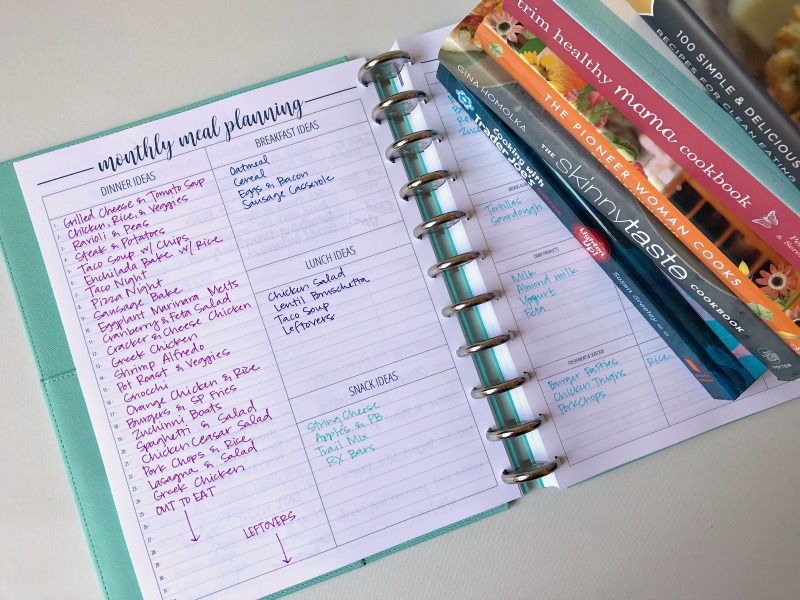 monthly meal planning
DINNER IDEAS
Grilled Cheese & Tomato Soup
Chicken, Rice, & Veggies
Ravioli & Peas
Steak & Potatoes
Taco Soup w/ Chips
Enchilada Bake w/ Rice
Taco Night
Pizza Night
Sausage Bake
Eggplant Marinara Melts
Cranberry & Feta Salad
Cracker & Cheese Chicken
Greek Chicken
Shrimp Alfredo
Pot Roast & Veggies
Gnocchi
Orange Chicken & Rice
Burgers & SP Fries
Zuchinni Boats
Spaghetti & Salad
Chicken Ceasar Salad
Pork Chops & Rice
Lasagna & Salad
Greek Chicken
OUT TO EAT
LEFTOVERS
BREAKFAST IDEAS
Oatmeal
Cereal
Eggs & Bacon
Sausage Casserole
LUNCH IDEAS
Chicken Salad
Lentil Bruschetta
Taco Soup
Leftovers
SNACK IDEAS
String Cheese
Apples & PB
Trail Mix
RX Bars
Tortillas
Sourdough
DAIRY PRODUCTS
Milk
Almond milk
Yogurt
Feta
Burger Patties
Chicken Thighs
Porkchops
Rice
Cooking with
Trader Joe's
Lighten Up!
Susan Greeley
GINA HOMOLKA
THE skinnytaste COOKBOOK
THE PIONEER WOMAN COOKS
trim healthy mama cookbook
100 SIMPLE & DELICIOUS
RECIPES FOR CLEAN EATING